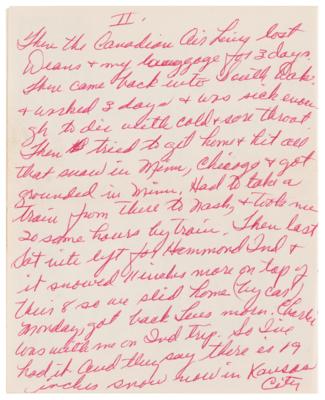 II.
Then the Canadian Air Lines lost
Deans & my luggage for 3 days.
Then came back into S. with Dak.
& worked 3 days & was sick enou
gh to die with cold & sore throat
Then tried to get home & hit all
that snow in Minn, Chicago & got
grounded in Minn. Had to take a
train from there to Nash, & took me
20 some hours by train. Then last
Sat nite left for Hammond Ind &
it snowed 11 inches more on top of
their 8 so we slid home (by car)
Monday, got back Tues morn. Charlie
was with me on Ind trip. So I've
had it. And they say there is 19
inches snow now in Kansas
City